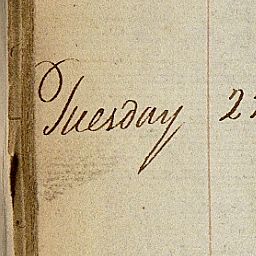 Tuesday 2